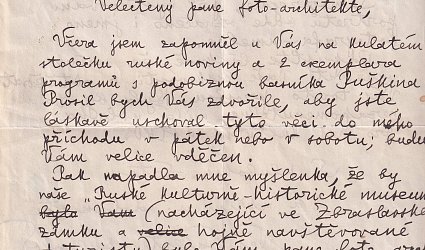 Velectěný pane foto-architekte,
Včera jsem zapomněl u Vás na kulatém
stolečku ruské noviny a 2 exemplara
programů s podobiznou basníka Puškina
Prosil bych Vás zdvořile, aby jste
láskavě uschoval tyto věci do mého
příchodu v pátek nebo v sobotu; budu
Vám velice vděčen.
Pak napadla mne myšlenka, že by
naše "Ruské Kulturně-historické museum
bylo Vám (nacházející ve Zbraslavské
zámku a velice hojně navštěvované
turisty) bylo Vám, pane